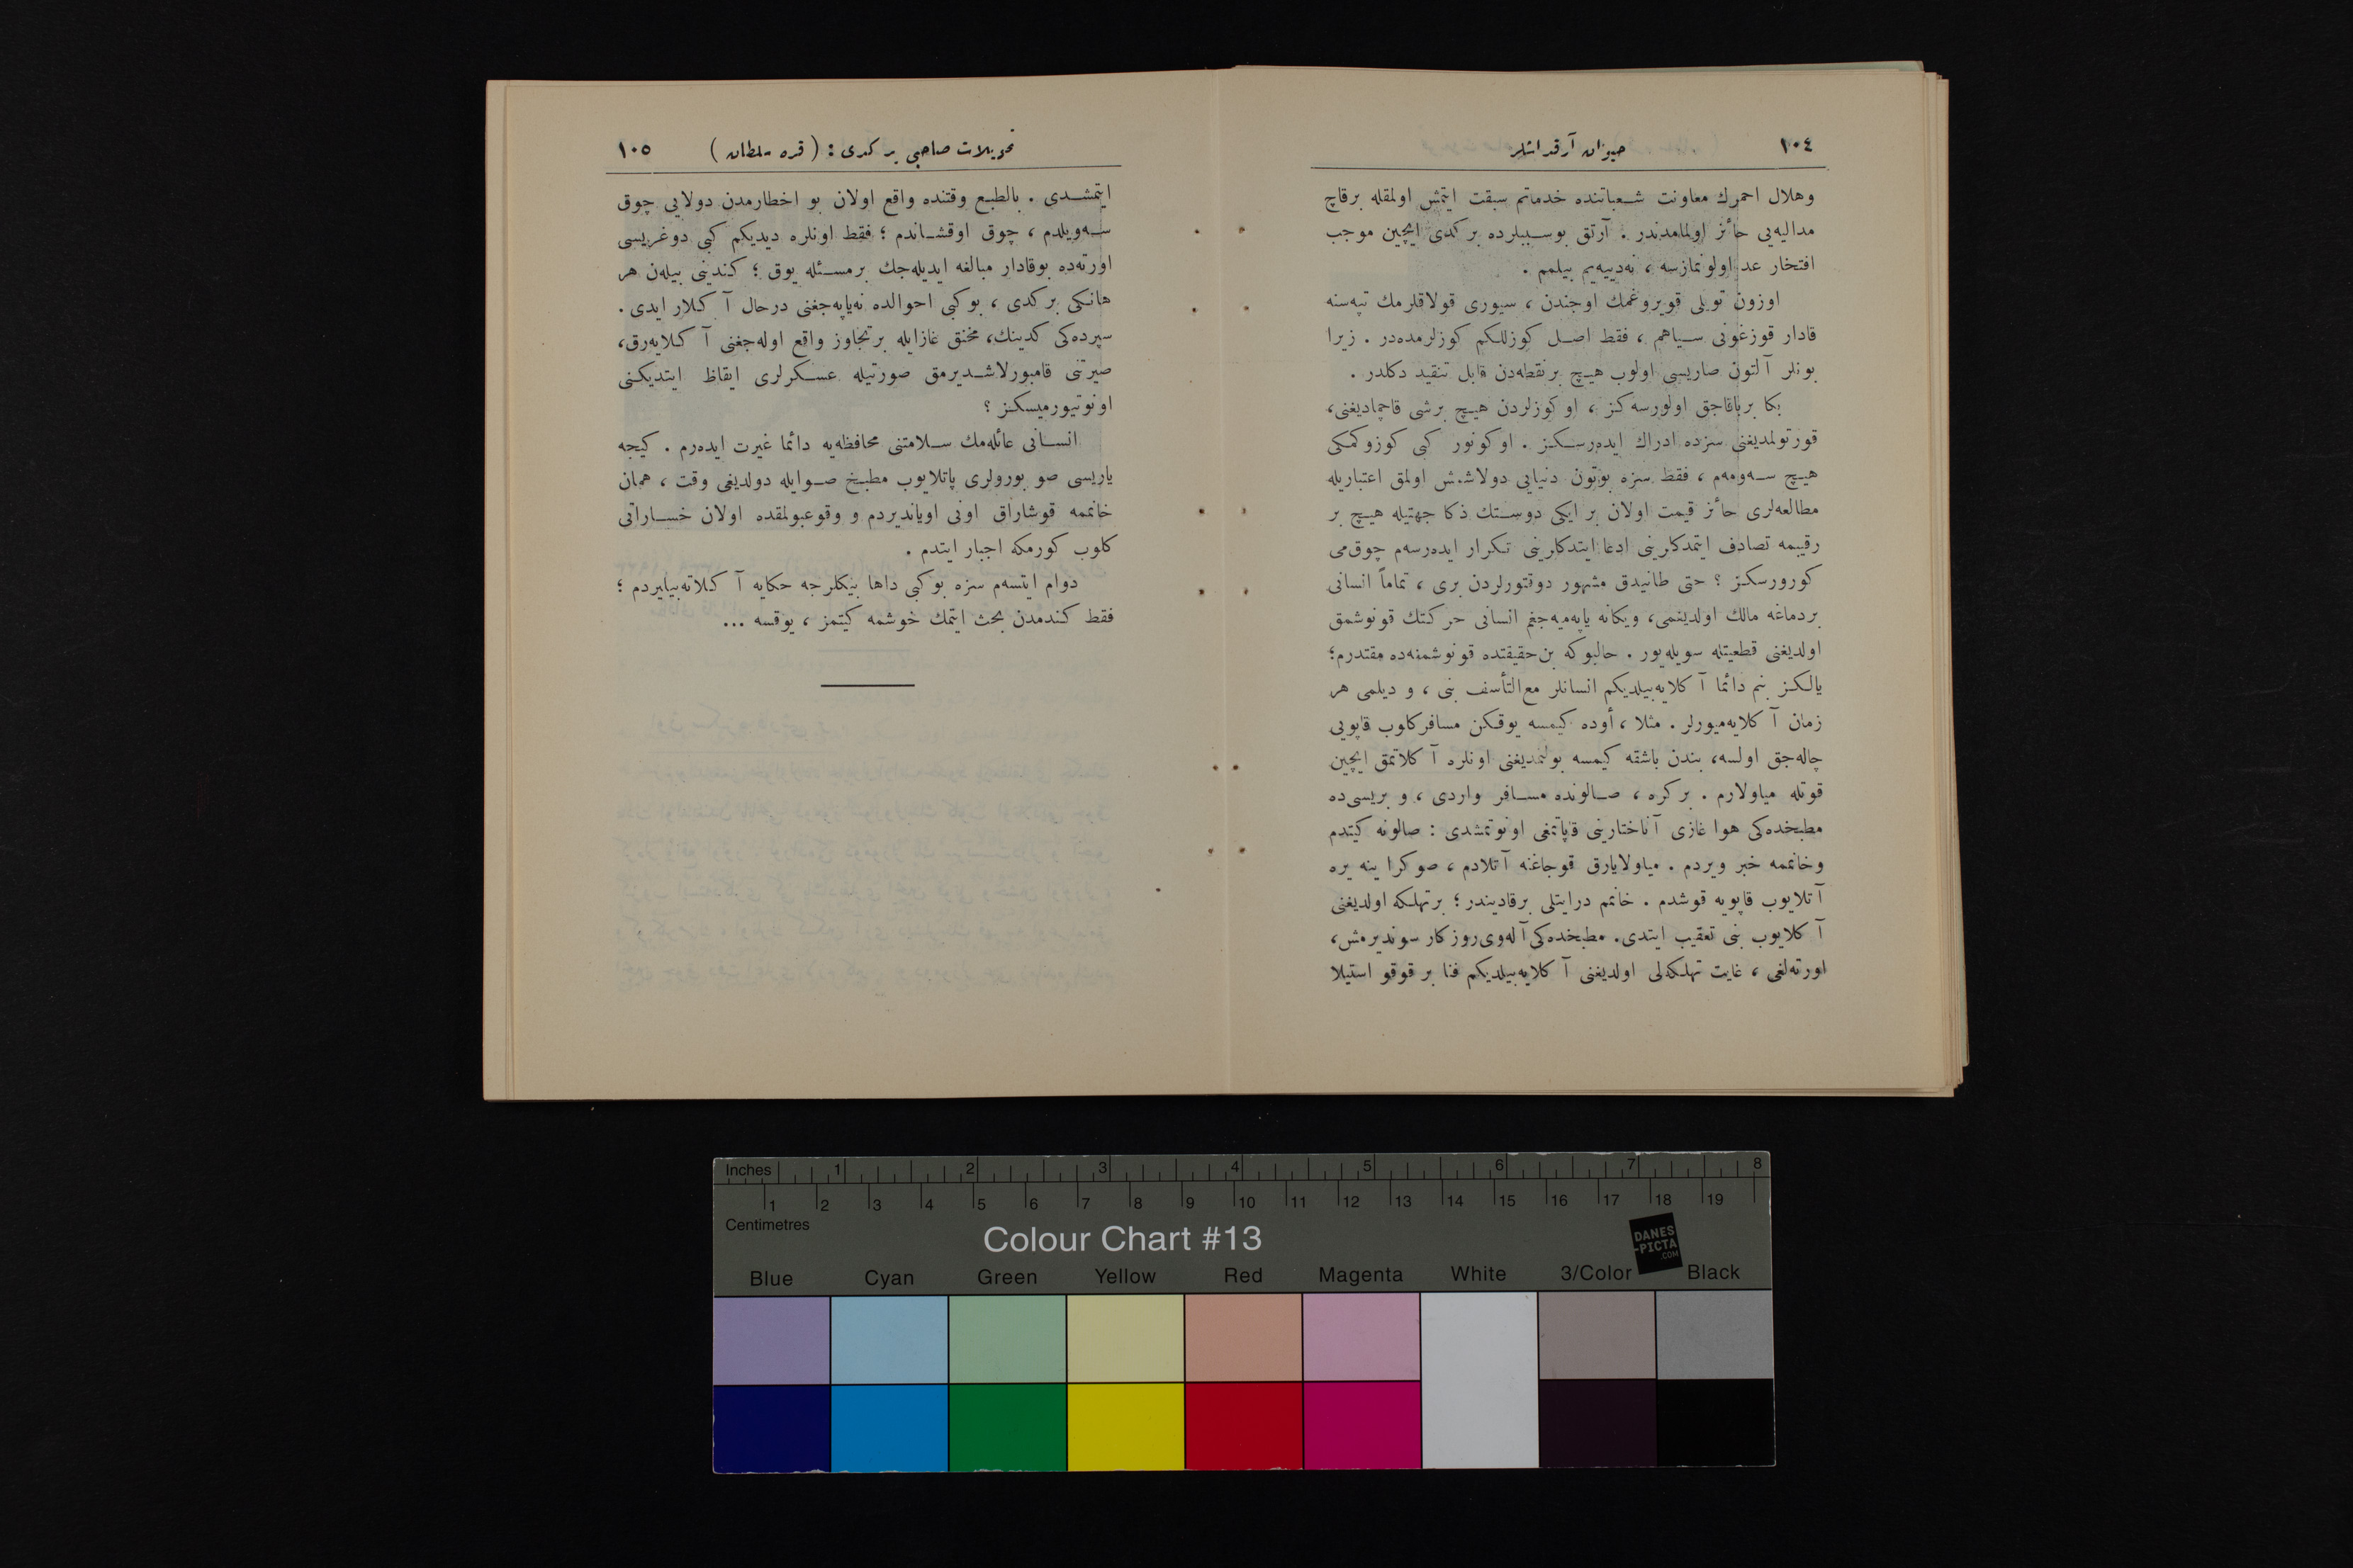 ١٠٤
حيوان آرقداشلر
وهلال احمرك معاونت شعباتنده خدماتم سبقت ايتمش اولمقله برقاچ
مداليه‌يى حائز اولمامدندر . آرتق بوسببلرده بر كدى ايچين موجب
افتخار عد اولونمازسه ، نه‌دييه‌يم بيلمم .
اوزون تويلى قويروغمك اوجندن ، سيورى قولاقلرمك تپه‌سنه
قادار قوزغونى سياهم ، فقط اصل كوزللكم كوزلرمده‌در . زيرا
بونلر آلتون صاريسى اولوب هيچ برنقطه‌دن قابل تنقيد دكلدر .
بكا برباقاجق اولورسه‌كز ، او كوزلردن هيچ برشى قاچماديغنى،
قورتولمديغنى سزده ادراك ايده‌رسكز . اوكونور كبى كوزوكمكى
هيچ سه‌ومه‌م ، فقط سزه بوتون دنيايى دولاشمش اولمق اعتباريله
مطالعه‌لرى حائز قيمت اولان بر ايكى دوستك ذكا جهتيله هيچ بر
رقيبمه تصادف ايتمدكلرينى ادعا ايتدكلرينى تكرار ايده‌رسه‌م چوق‌مى
كورورسكز ؟ حتى طانيدق مشهور دوقتورلردن برى ، تماماً انسانى
بردماغه مالك اولديغمى، ويكانه ياپه‌ميه‌جغم انسانى حركتك قونوشمق
اولديغنى قطعيتله سويله‌يور . حالبوكه بن‌حقيقتده قونوشمغه‌ده مقتدرم؛
يالكز بنم دائما آكلايه‌بيلديكم انسانلر مع‌التأسف بنى ، و ديلمى هر
زمان آكلايه‌ميورلر . مثلا ، أوده كيمسه يوقكن مسافركلوب قاپويى
چاله‌جق اولسه، بندن باشقه كيمسه بولنمديغنى اونلره آكلاتمق ايچين
قوتله مياولارم . بركره ، صالونده مسافر واردى ، و بريسى‌ده
مطبخده‌كى هوا غازى آناختارينى قاپاتمغى اونوتمشدى : صالونه كيتدم
وخانممه خبر ويردم . مياولايارق قوجاغنه آتلادم ، صوكرا ينه يره
آتلايوب قاپويه قوشدم . خانمم درايتلى برقاديندر ؛ برتهلكه اولديغنى
آكلايوب بنى تعقيب ايتدى. مطبخده‌كى آله‌وى روزكار سونديرمش،
اورته‌لغى ، غايت تهلكه‌لى اولديغنى آكلايه‌بيلديكم فنا بر قوقو استيلا
تحويلات صاحبى بر كدى : ( قره سلطان )
١٠٥
ايتمشدى . بالطبع وقتنده واقع اولان بو اخطارمدن دولايى چوق
سه‌ويلدم ، چوق اوقشاندم ؛ فقط اونلره ديديكم كبى دوغريسى
اورته‌ده بوقادار مبالغه ايديله‌جك برمسئله يوق ؛ كندينى بيله‌ن هر
هانكى بر كدى ، بوكبى احوالده نه‌ياپه‌جغنى درحال آكلار ايدى .
سپرده‌كى كدينك، مخنق غازايله برتجاوز واقع اوله‌جغنى آكلايه‌رق،
صيرتنى قامبورلاشديرمق صورتيله عسكرلرى ايقاظ ايتديكنى
اونوتيورميسكز ؟
انسانى عائله‌مك سلامتنى محافظه‌يه دائما غيرت ايده‌رم . كيجه
ياريسى صو بورولرى پاتلايوب مطبخ صوايله دولديغى وقت ، همان
خانممه قوشاراق اونى اوياندیردم و وقوعبولمقده اولان خساراتى
كلوب كورمكه اجبار ايتدم .
دوام ايتسه‌م سزه بوكبى داها بيكلرجه حكايه آكلاته‌بيليردم ؛
فقط كندمدن بحث ايتمك خوشمه كيتمز ، يوقسه ...
Inches 1 2 3 4 5 6 7 8
1 2 3 4 5 6 7 8 9 10 11 12 13 14 15 16 17 18 19
Centimetres
Colour Chart #13
DANES
-PICTA
.COM
Blue Cyan Green Yellow Red Magenta White 3/Color Black